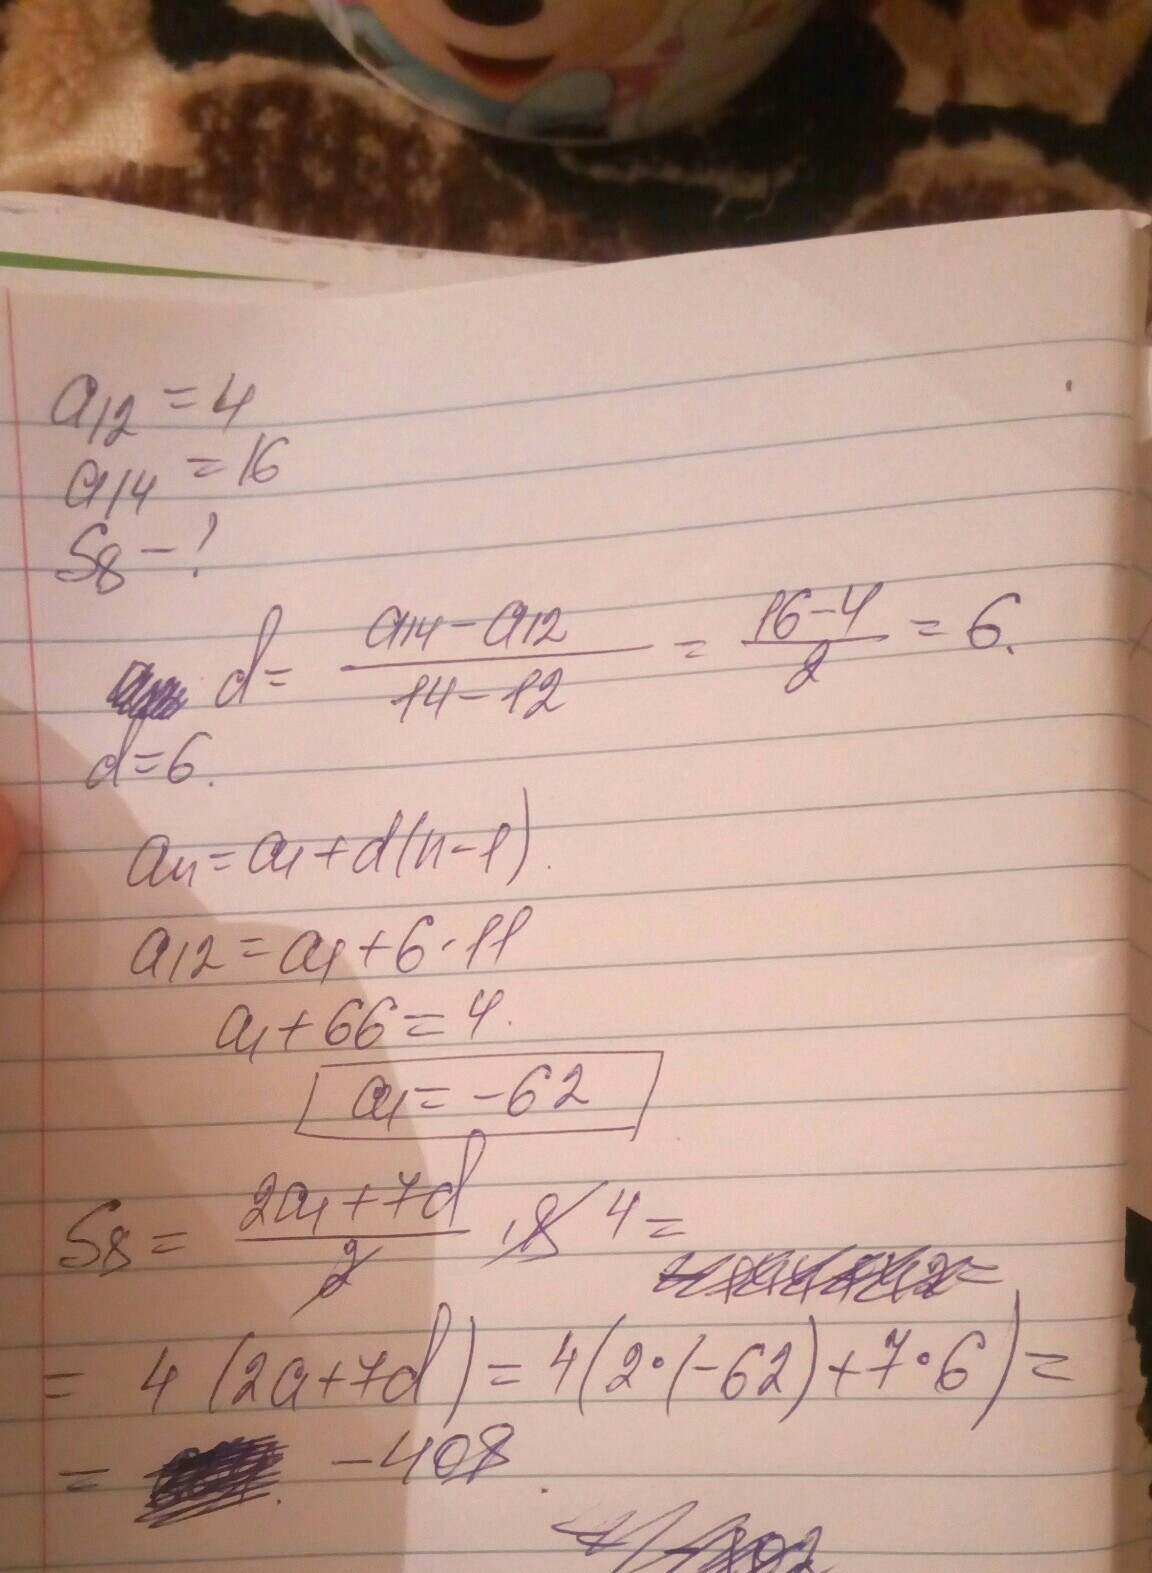 a12 = 4
a14 = 16
S8 - ?
d = a14 - a12 / 14 - 12 = 16 - 4 / 2 = 6.
d = 6.
an = a1 + d(n - 1).
a12 = a1 + 6 · 11
a1 + 66 = 4.
a1 = -62
S8 = 2a1 + 7d / 2 · 8 4 =
= 4 (2a1 + 7d) = 4(2 · (-62) + 7 · 6) =
= -408.